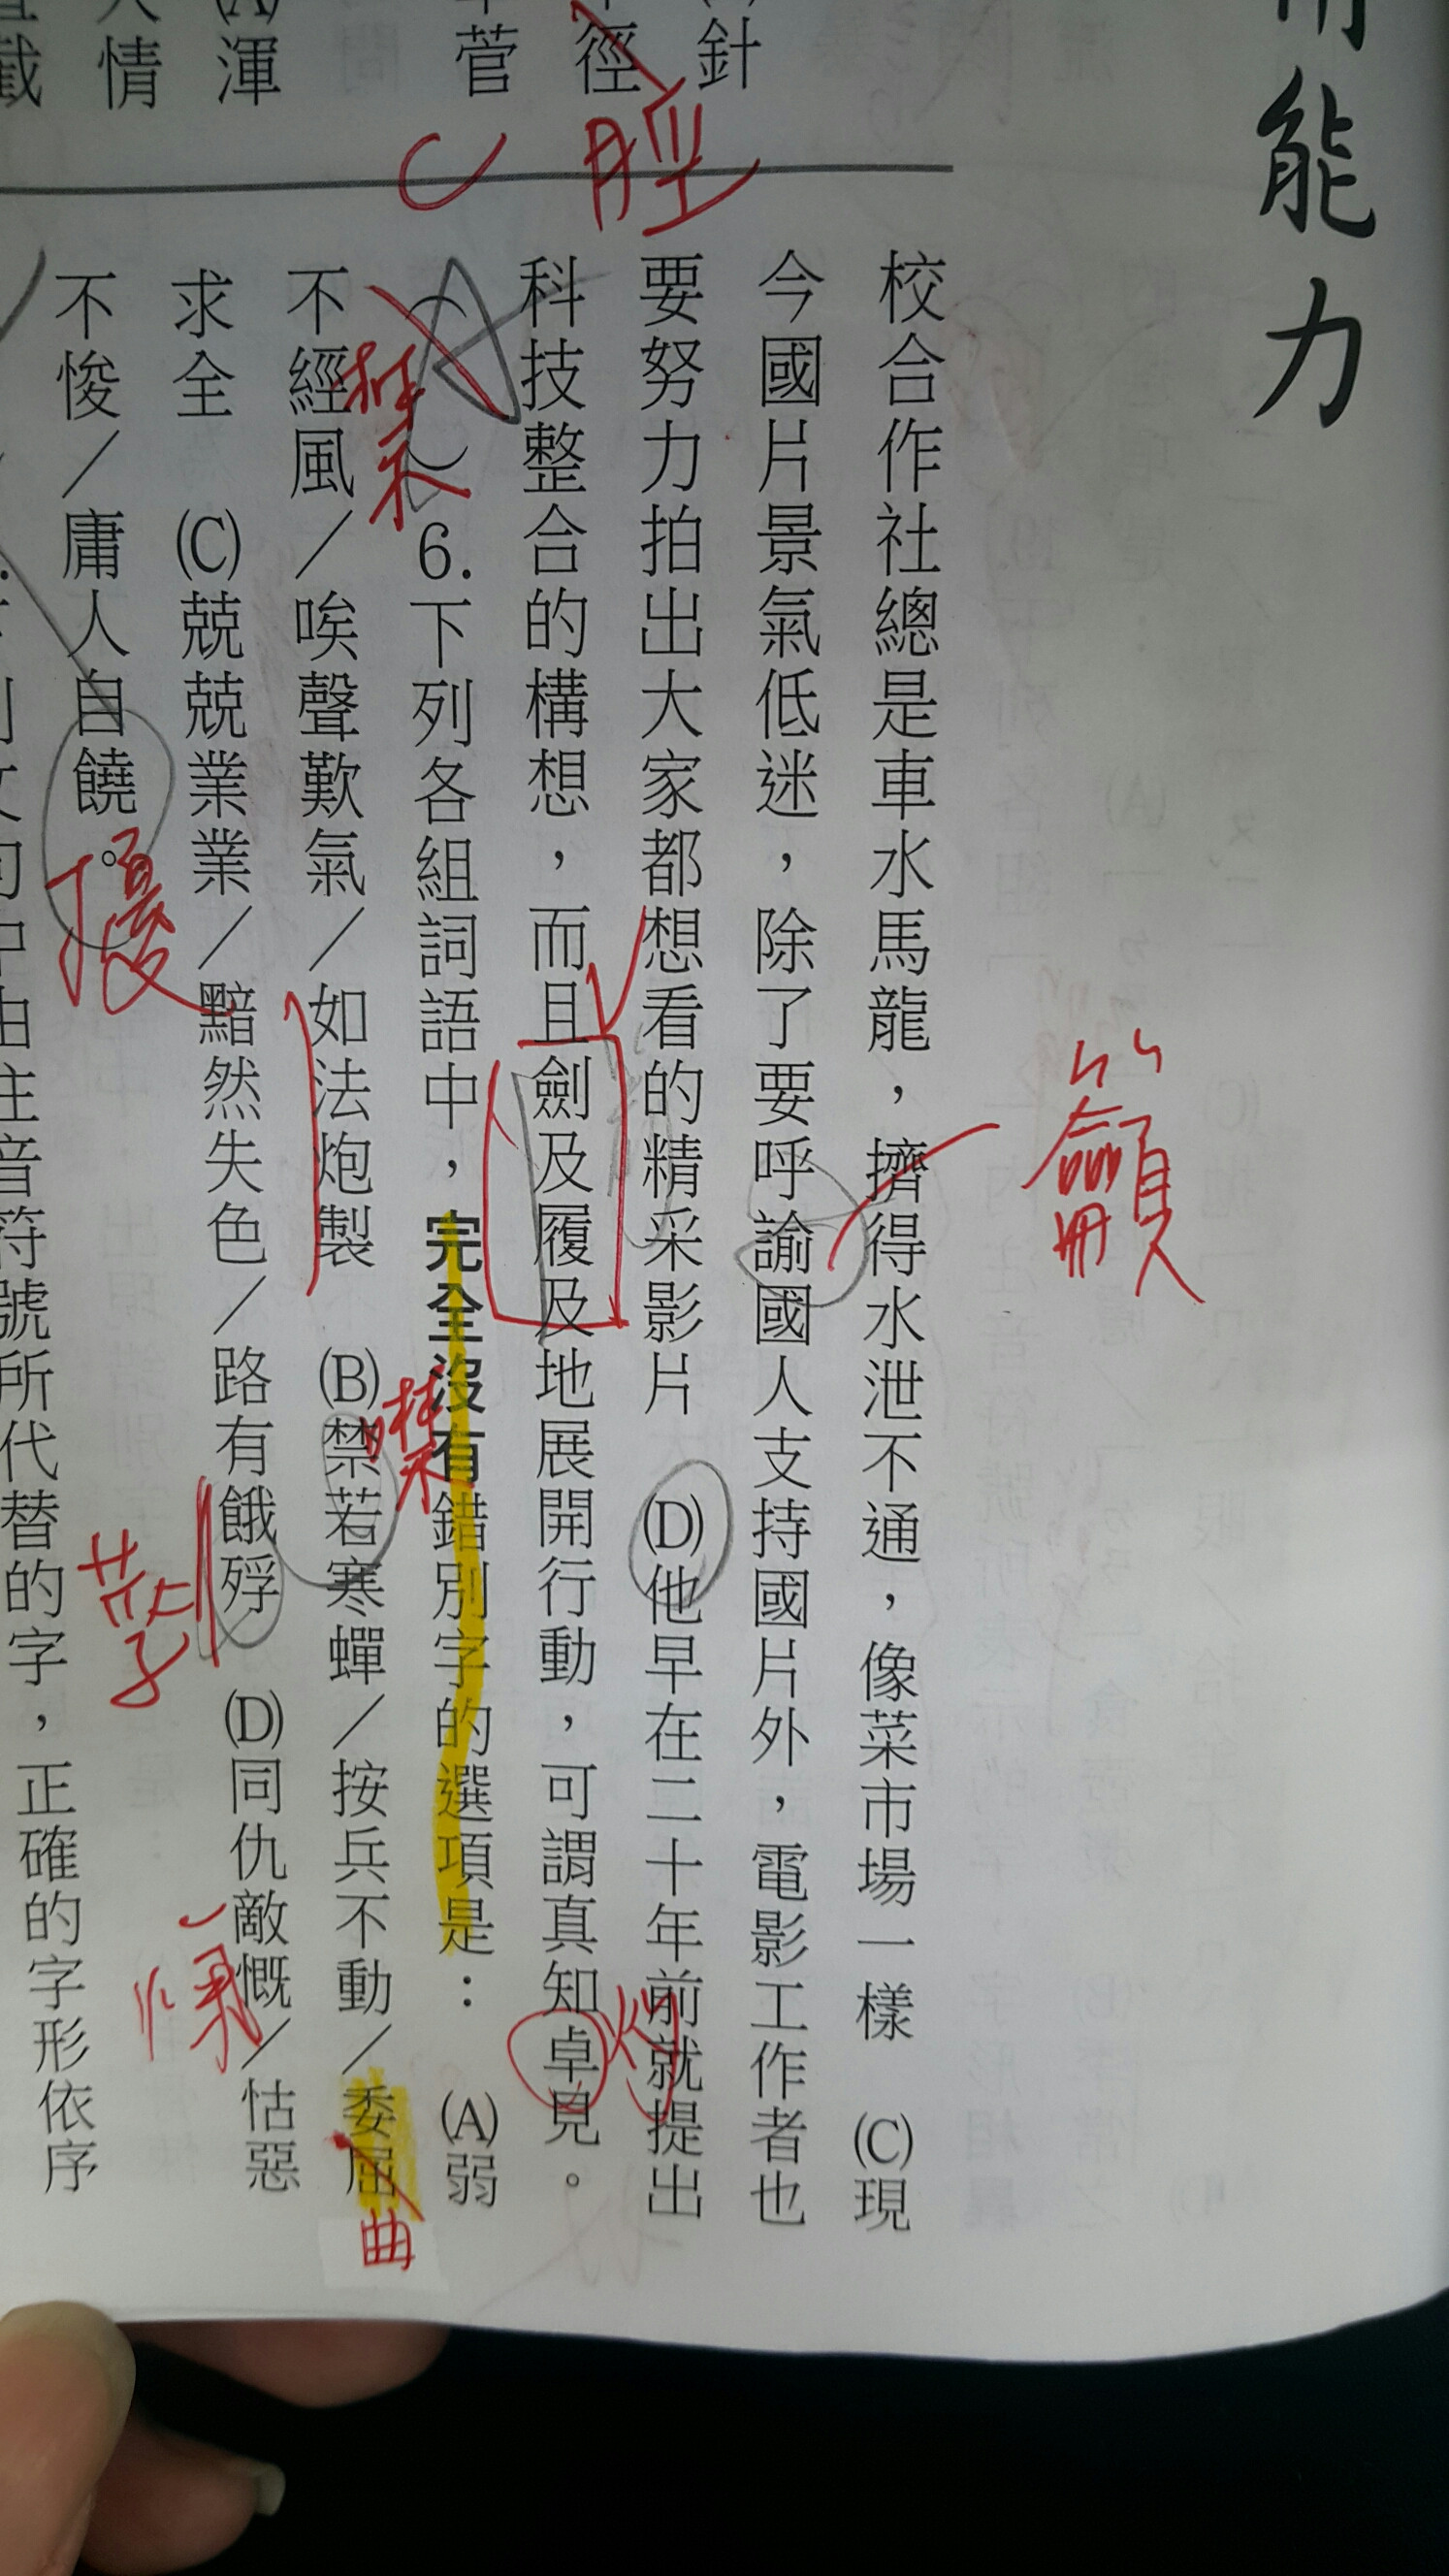 能力
針
徑
菅
渾
情
截
脛
C
校合作社總是車水馬龍，擠得水泄不通，像菜市場一樣 (C)現
今國片景氣低迷，除了要呼諭國人支持國片外，電影工作者也
要努力拍出大家都想看的精采影片 (D)他早在二十年前就提出
科技整合的構想，而且劍及履及地展開行動，可謂真知卓見。
( ) 6.下列各組詞語中，完全沒有錯別字的選項是： (A)弱
不經風／唉聲歎氣／如法炮製 (B)禁若寒蟬／按兵不動／委屈
求全 (C)兢兢業業／黯然失色／路有餓殍 (D)同仇敵慨／怙惡
不悛／庸人自饒。
所代替的字，正確的字形依序
籲
灼
禁
噤
曲
莩
愾
擾